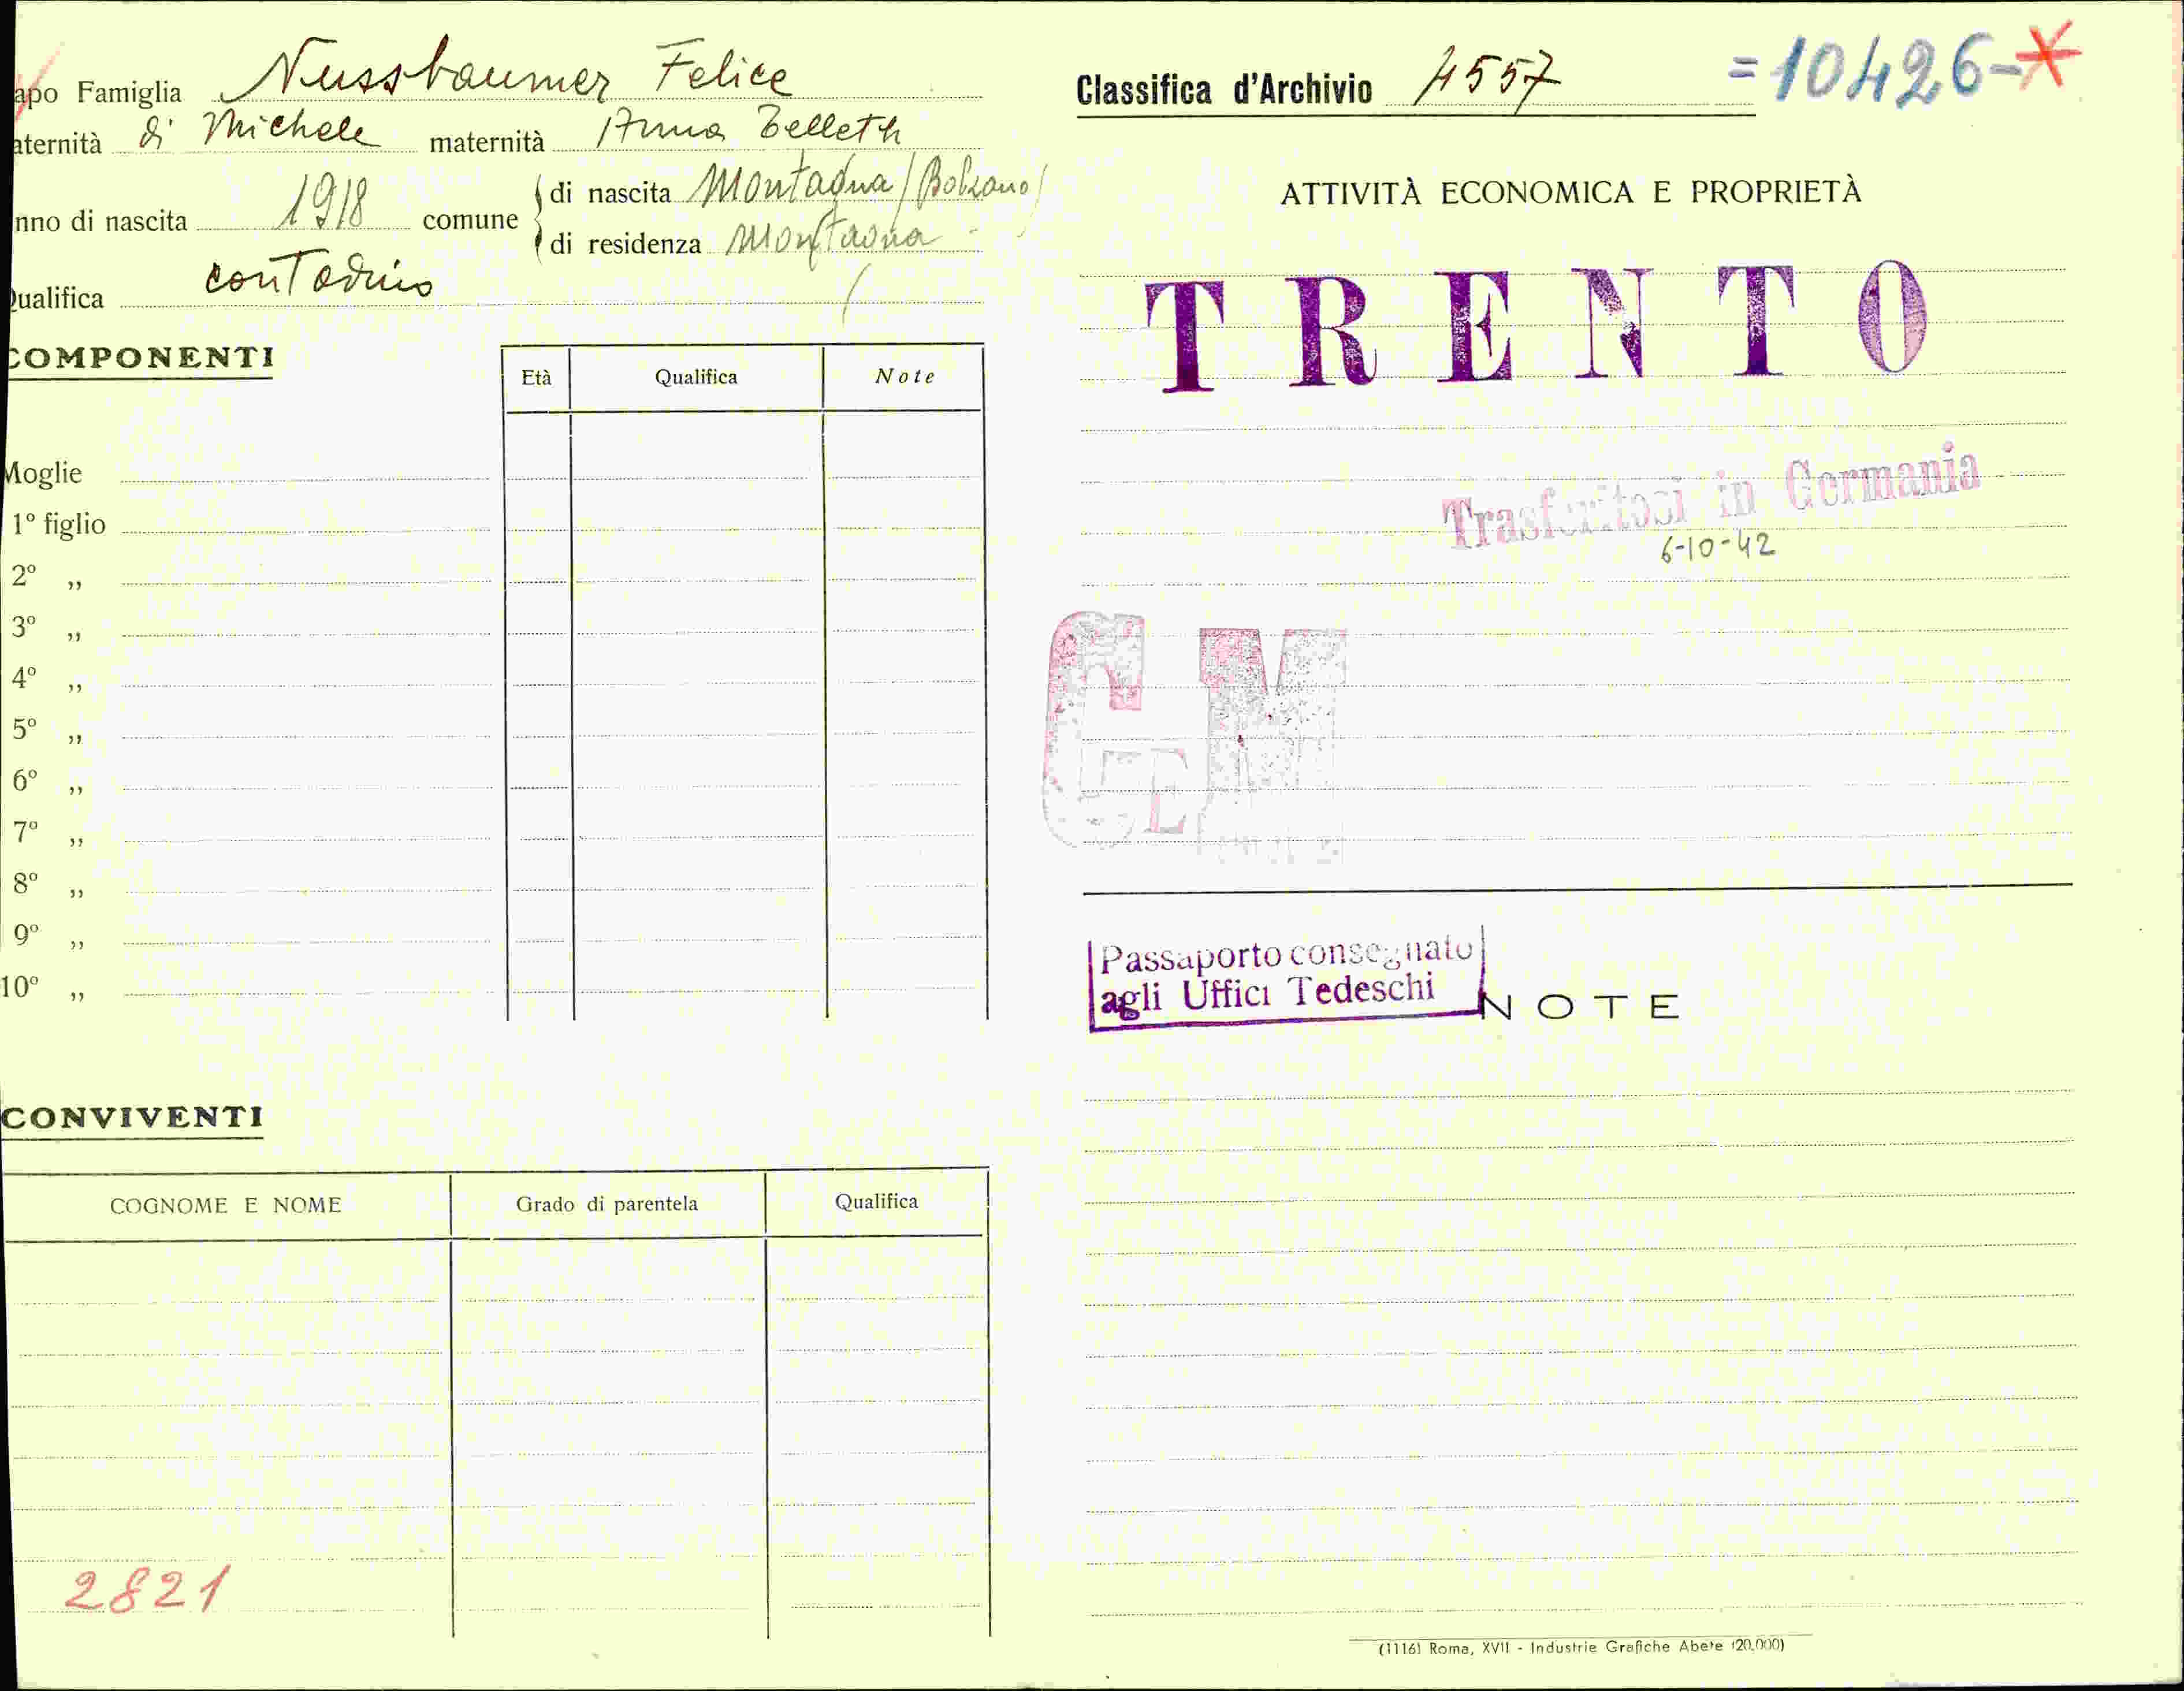 apo Famiglia Nussbaumer Felice
aternità di Michele maternità Anna Zelleth
nno di nascita 1918 comune di nascita Montagna (Bolzano)
di residenza Montagna
Qualifica contadino
COMPONENTI
Età Qualifica Note
Moglie
1º figlio
2º „
3º „
4º „
5º „
6º „
7º „
8º „
9º „
10º „
CONVIVENTI
COGNOME E NOME Grado di parentela Qualifica
2821
Classifica d'Archivio 4557 =10426-*
ATTIVITÀ ECONOMICA E PROPRIETÀ
TRENTO
Trasferitosi in Germania
6-10-42
GM
E
Passaporto consegnato
agli Uffici Tedeschi
NOTE
(1116) Roma, XVII - Industrie Grafiche Abete (20.000)